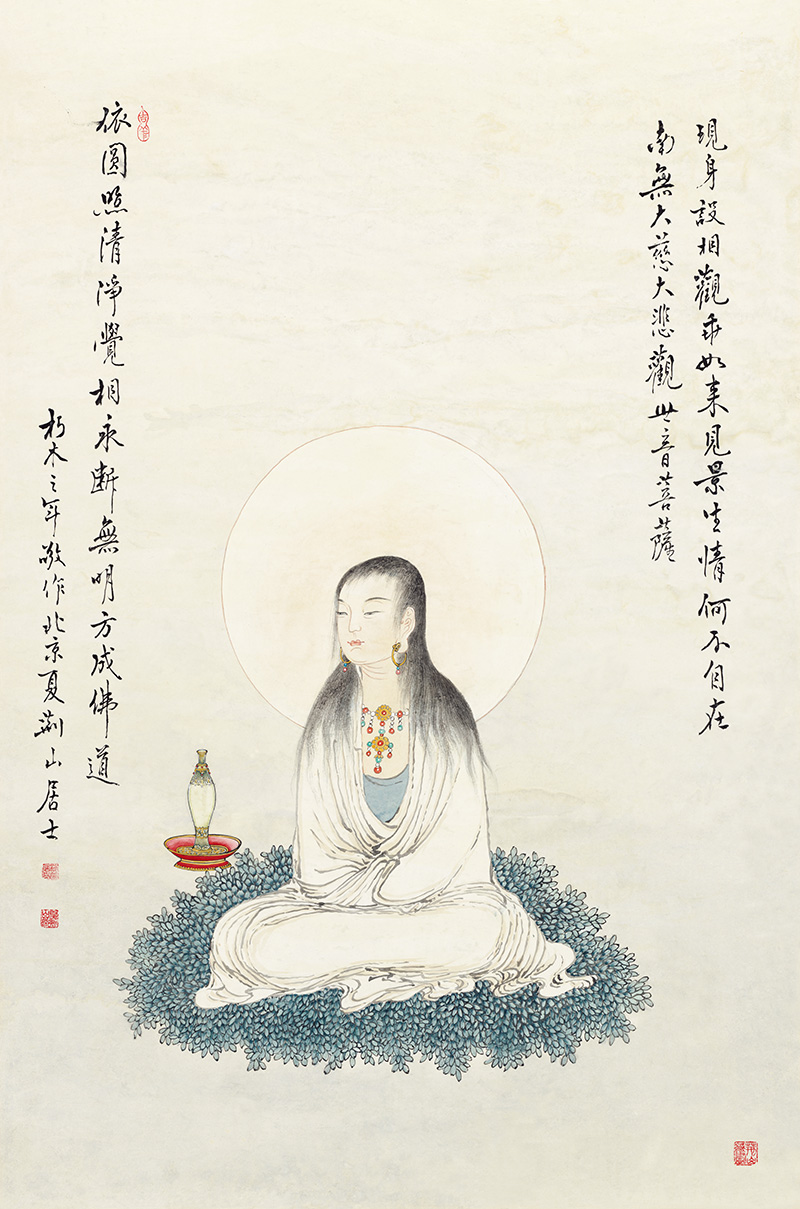 現身設相觀乖如来見景生情何不自在
南無大慈大悲觀世音菩薩
依圓照清淨覺相永斷無明方成佛道
朽木之年敬作北京夏荊山居士